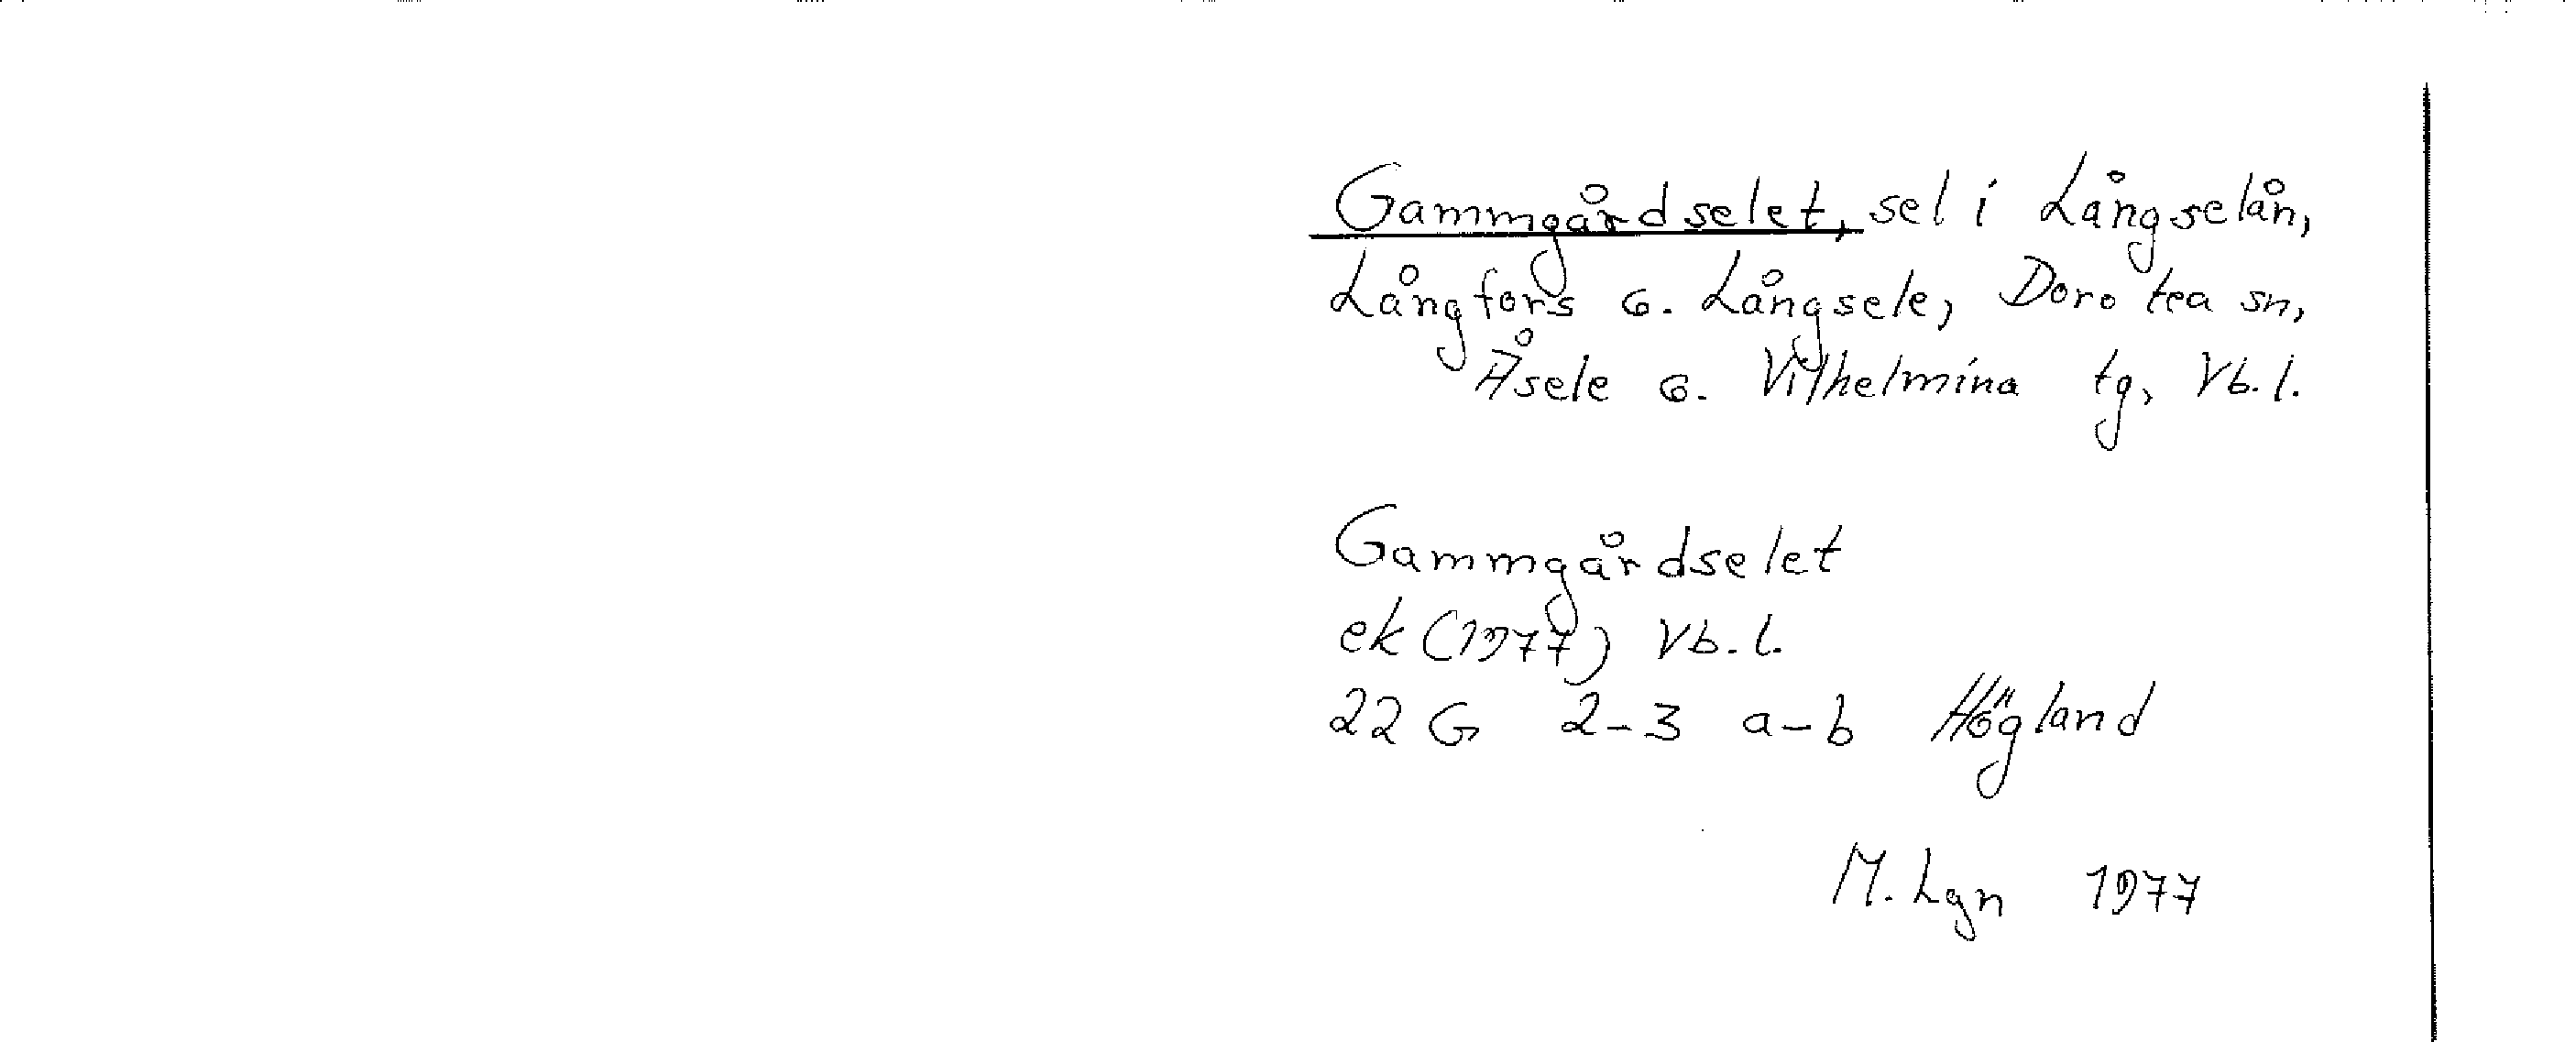 Gammgårdselet, sel i Långselån,
Långfors o. Långsele, Dorotea sn,
Åsele o. Vilhelmina tg, Vb.l.
Gammgårdselet
ek (1977) Vb.l.
22 G 2-3 a-b Högland
M. Lgn 1977